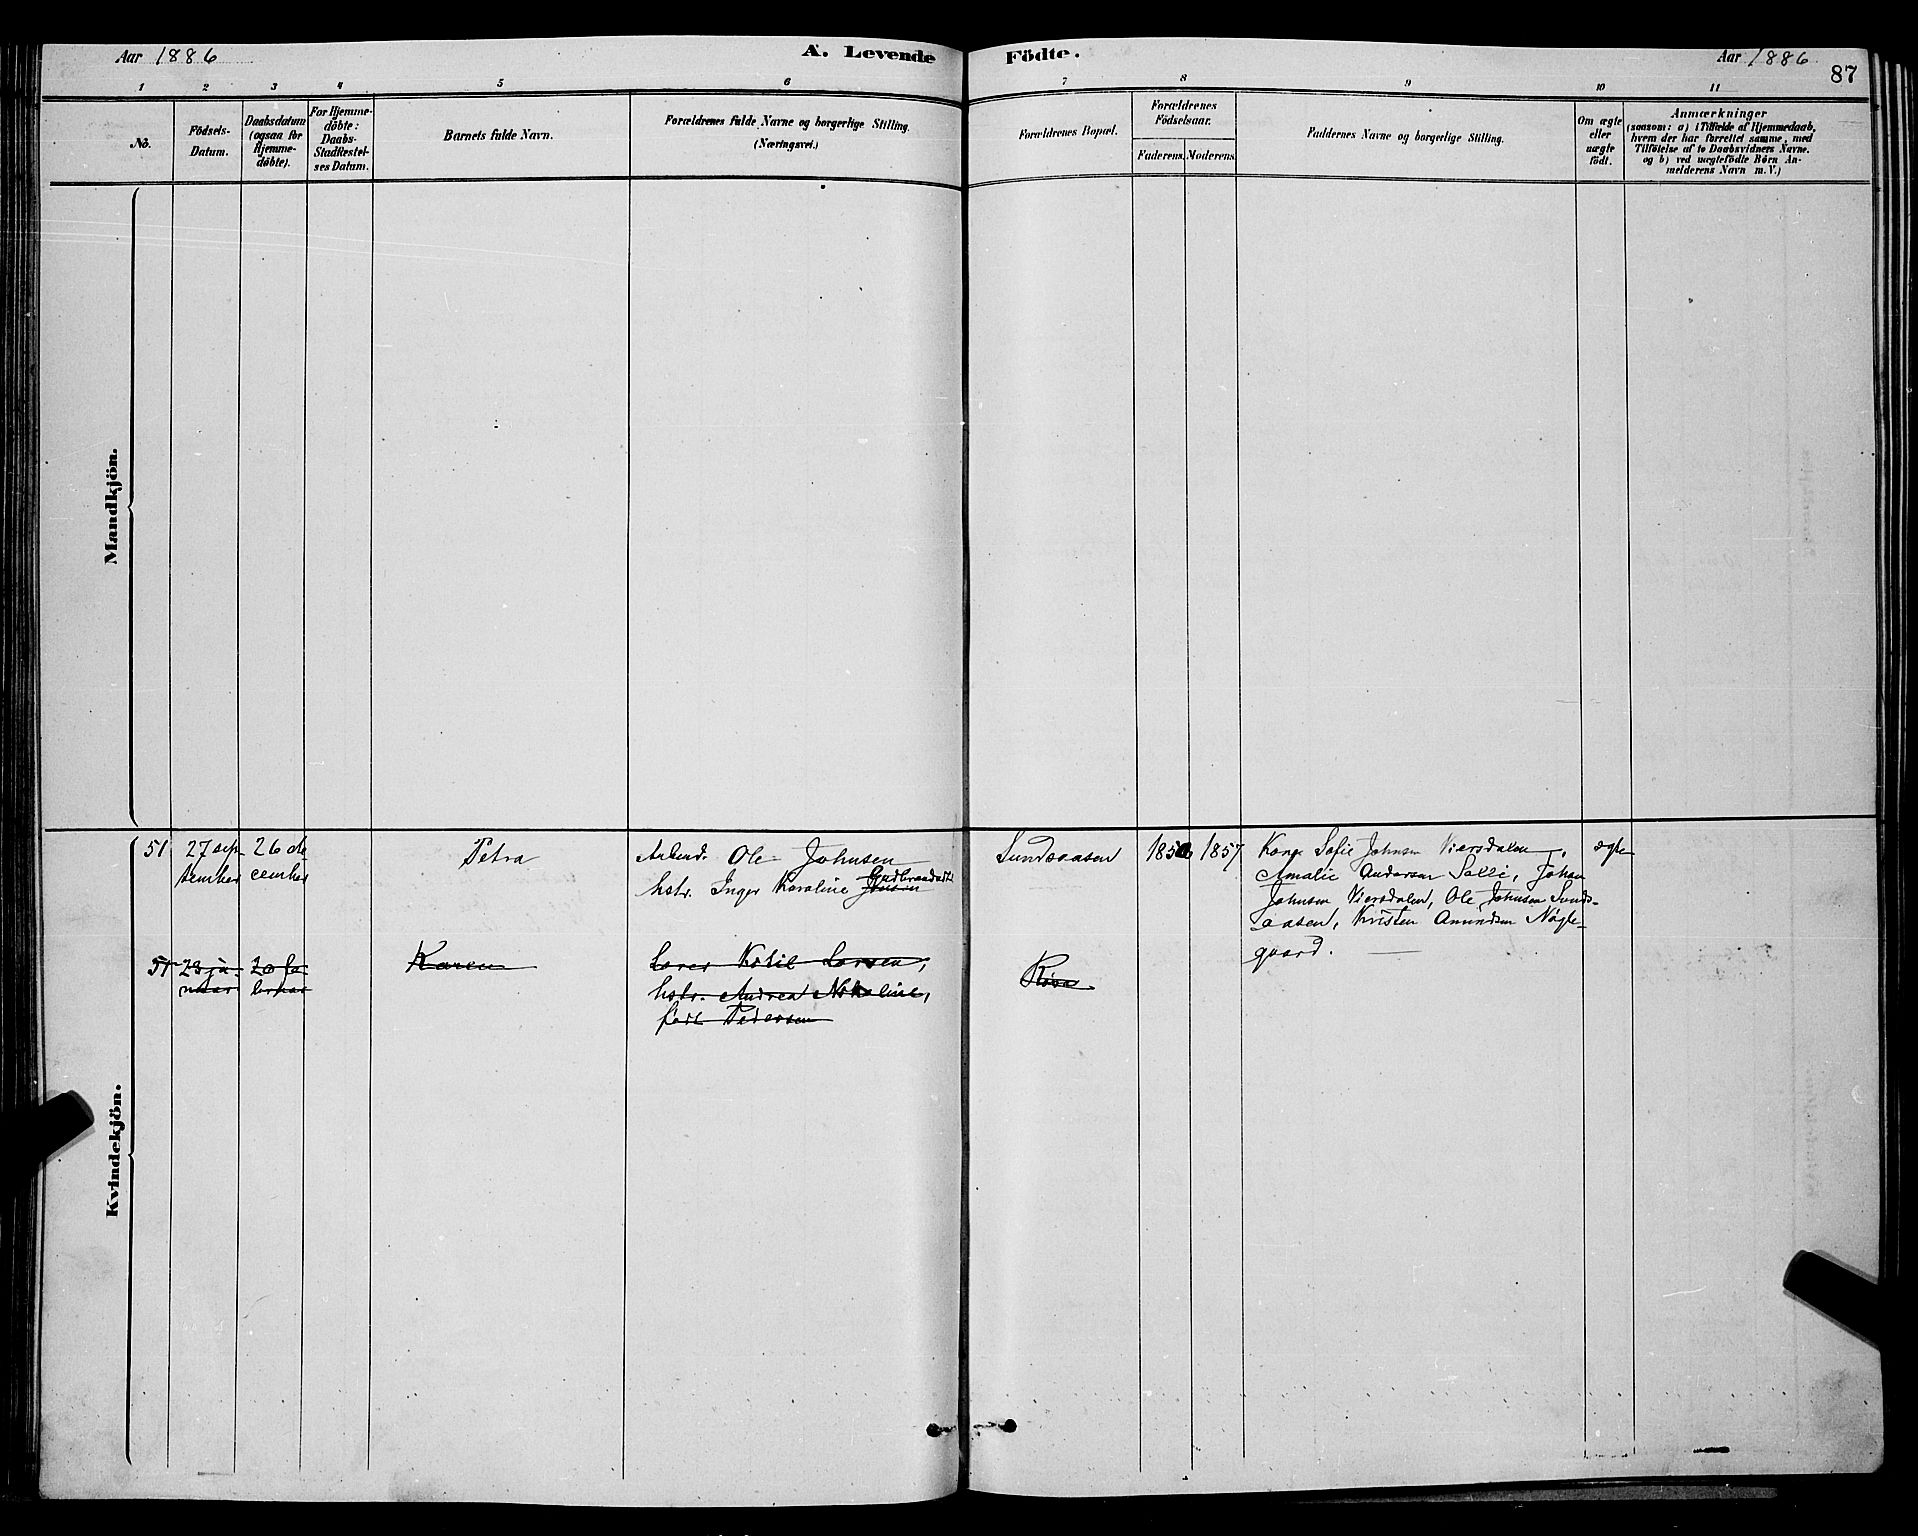 Aar 1886
A. Levende Födte.
Aar 1886
87
1 2 3 4 5 6 7 8 9 10 11
No.
Födsels-
Datum.
Daabsdatum
(ogsaa for
Hjemme-
döbte).
For Hjemme-
döbte:
Daabs-
Stadfæstel-
ses Datum.
Barnets fulde Navn.
Forældrenes fulde Navne og borgerlige Stilling.
(Næringsvei.)
Forældrenes Bopæl.
Forældrenes
Födselsaar.
Faderens. Moderens.
Faddernes Navne og borgerlige Stilling.
Om ægte
eller
uægte
födt.
Anmærkninger
(saasom: a) i Tilfælde af Hjemmedaab,
hvem der har forrettet samme, med
Tilföielse af to Daabsvidners Navne.
og b) ved uægtefödte Börn An-
melderens Navn m. V.)
Mandkjön.
Kvindekjön.
51
27 sep-
tember
26 de
cember
Petra
Arbeid. Ole Johnsen
hstr. Inger Karoline Gudbrandsdt.
Sundsaasen
1857
Kone Sofie Johnsen Viersdalen,
Amalie Andersen Solli, Johan
Johnsen Viersdalen, Ole Johnsen Sunds-
aasen, Kristen Amundsen Nøgle-
gaard.
ægte
51
23 ja-
nuar
20 fe
bruar
Karen
Larer Kolil Larsen,
hstr. Andrea Nikoline,
født Pedersen